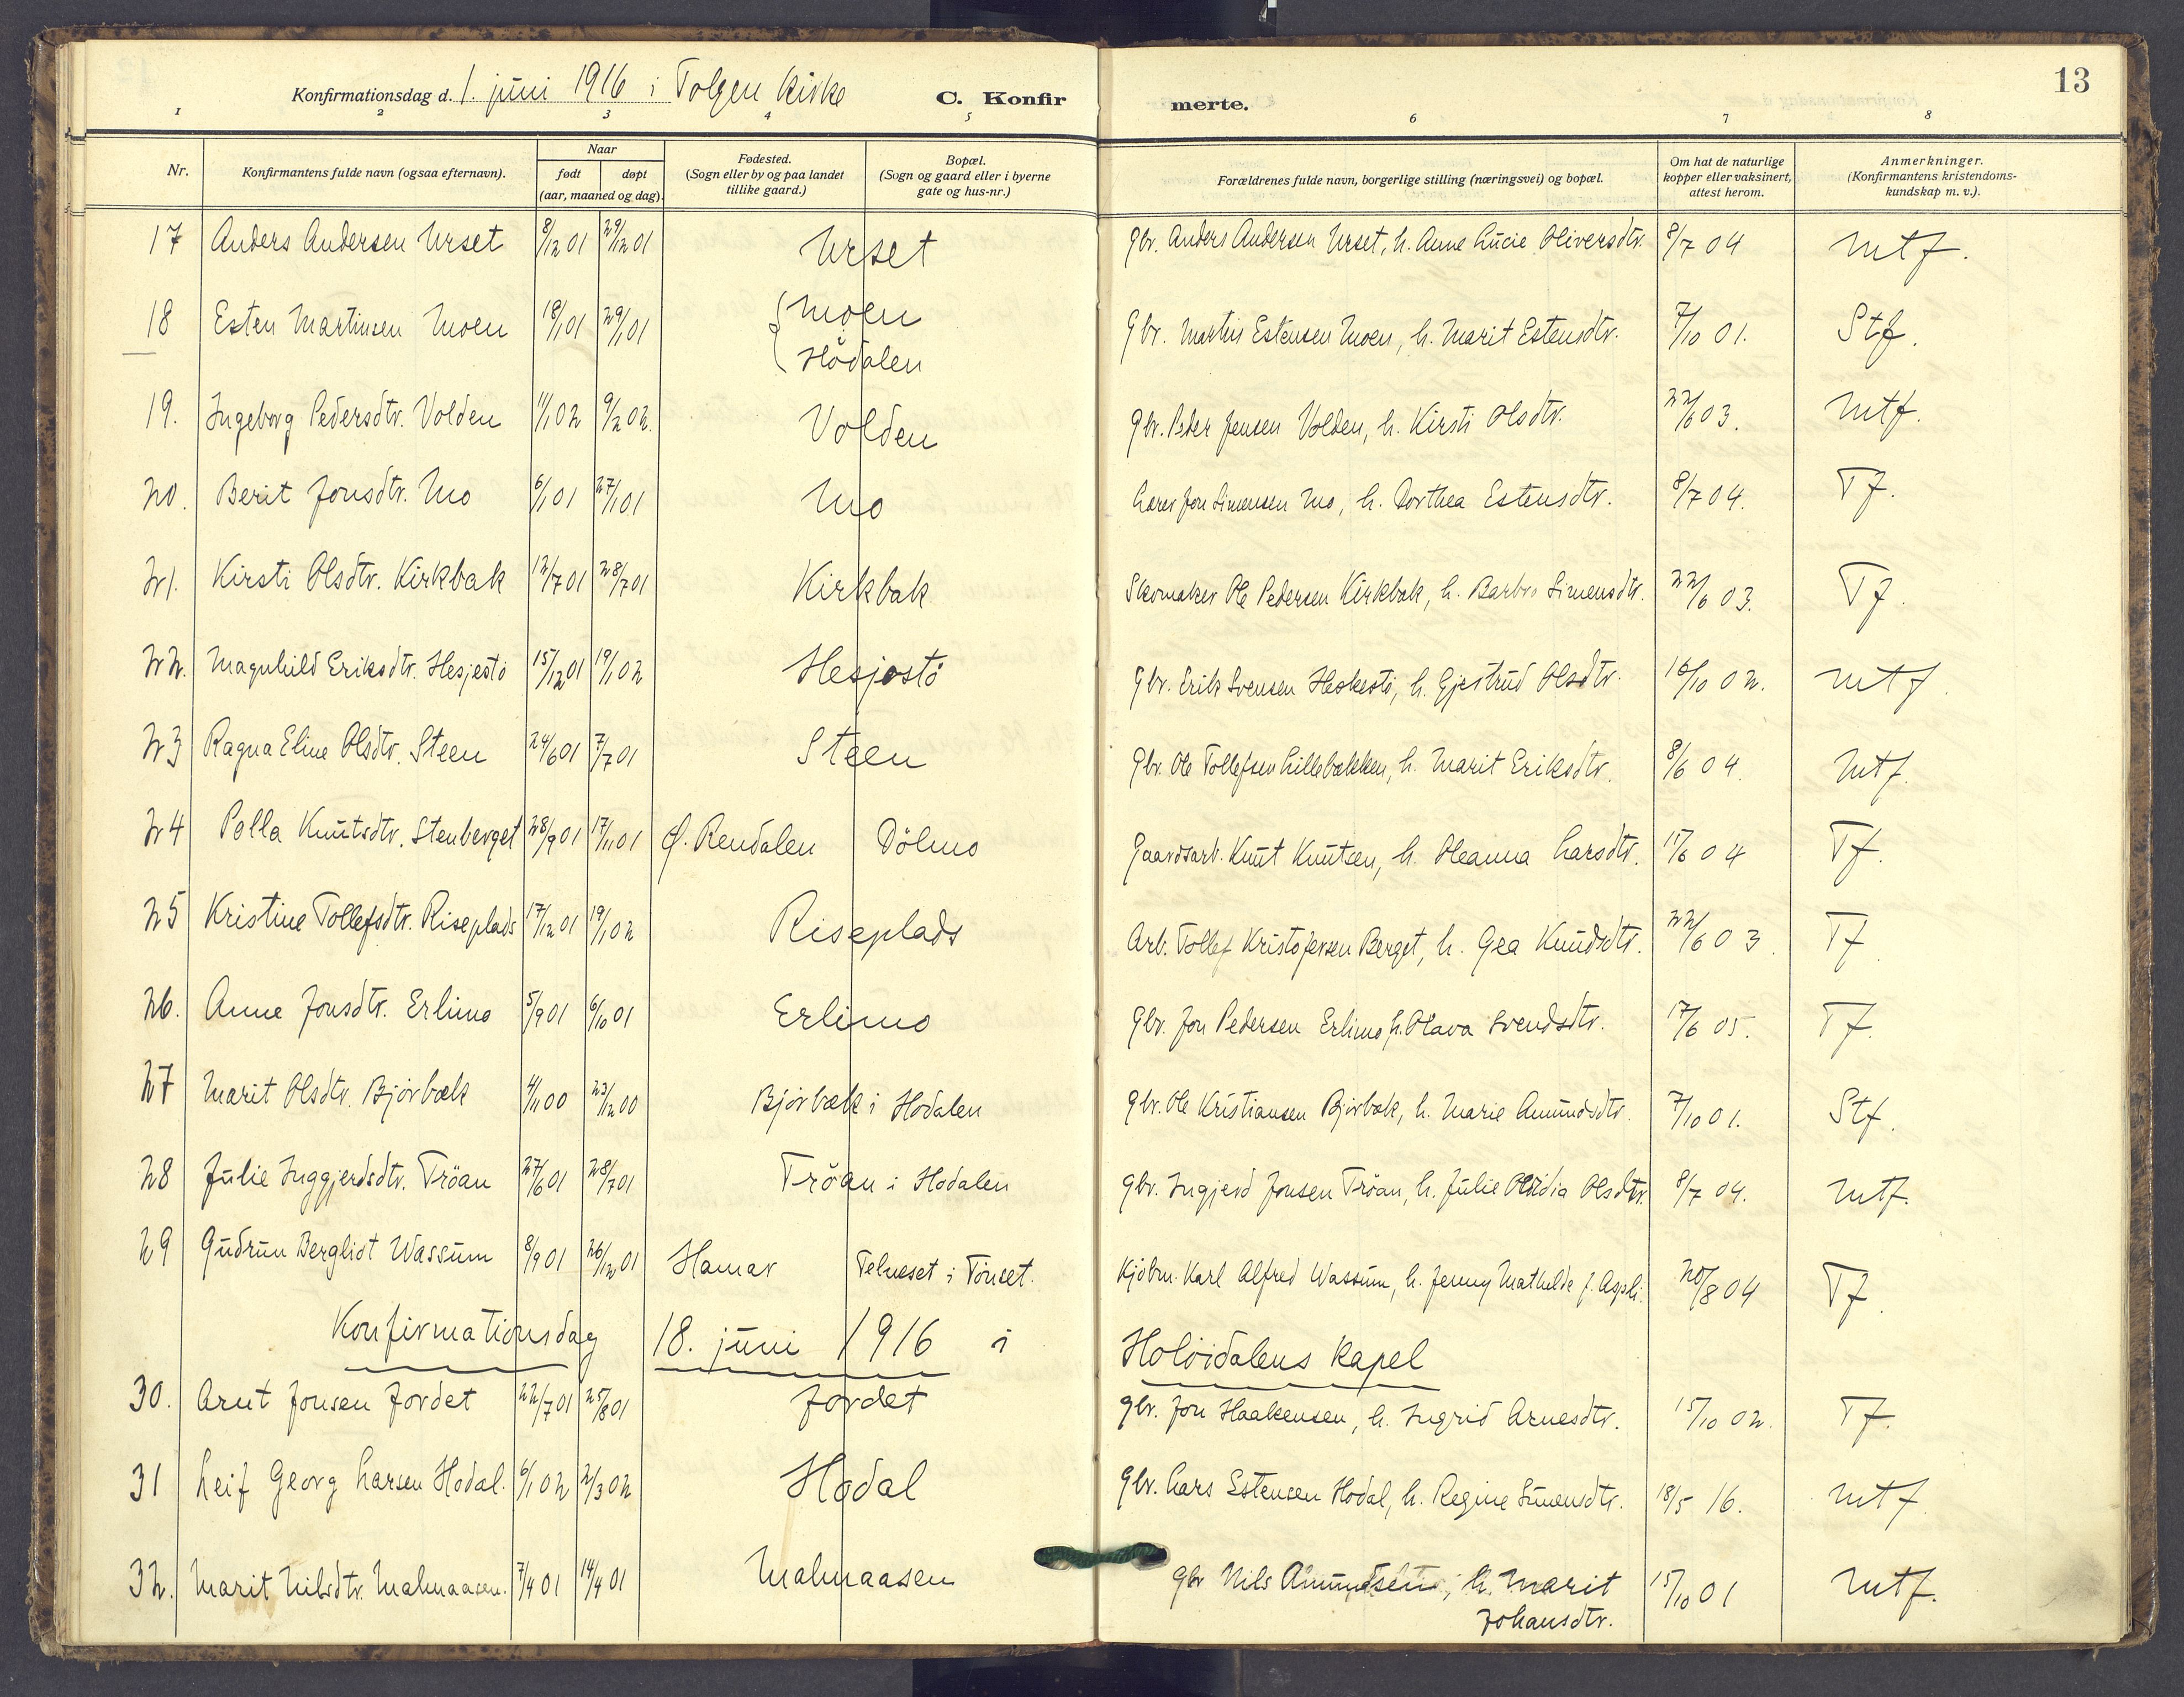 Konfirmationsdag d. 1. juni 1916 i Tolgen kirke C. Konfirmerte. 13
1 2 3 4 5 6 7 8
Nr. Konfirmantens fulde navn (ogsaa efternavn). Naar født døpt (aar, maaned og dag) Fødested. (Sogn eller by og paa landet tillike gaard.) Bopæl. (Sogn og gaard eller i byerne gate og hus-nr.) Forældrenes fulde navn, borgerlige stilling (næringsvei) og bopæl. Om hat de naturlige kopper eller vaksinert, attest herom. Anmerkninger. (Konfirmantens kristendoms-kundskap m. v.).
17 Anders Andersen Urset 8/12 01 29/12 01 Urset Gbr. Anders Andersen Urset, h. Anne Lucie Oliversdtr. 8/7 04 Mtf.
18 Esten Martinsen Moen 18/1 01 29/1 01 Moen Hödalen Gbr. Martin Estensen Moen, h. Marit Estensdtr. 7/10 01. Stf.
19. Ingeborg Pedersdtr. Volden 11/1 02 9/2 02. Volden Gbr. Peder Jensen Volden, h. Kirsti Olsdtr. 22/6 03. Mtf.
20. Berit Jonsdtr. Mo 6/1 01 27/1 01 Mo Lærer Jon Simensen Mo, h. Dorthea Estensdtr. 8/7 04. Tf.
21. Kirsti Olsdtr. Kirkbak 12/7 01 28/7 01 Kirkbak Skomaker Ole Pedersen Kirkbak, h. Barbro Simensdtr. 22/6 03. Tf.
22. Magnhild Eriksdtr. Hesjestö 15/12 01 19/1 02 Hesjestö Gbr. Erik Svensen Heskestö, h. Gjertrud Olsdtr. 16/10 02. Mtf.
23 Ragna Eline Olsdtr. Steen 24/6 01 7/7 01 Steen Gbr. Ole Tollefsen Lillebakken, h. Marit Eriksdtr. 8/6 04. Mtf.
24 Palla Knutsdtr. Stenberget 28/9 01 17/11 01 Ø. Rendalen Dölmo Gaardsarb. Knut Knutsen, h. Oleanna Larsdtr. 17/6 04 Tf.
25 Kristine Tollefsdtr. Riseplads 17/12 01 19/1 02 Riseplads Arb. Tollef Kristofersen Berget, h. Gea Knudsdtr. 22/6 03. Tf.
26. Anne Jonsdtr. Erlimo 5/9 01 6/10 01 Erlimo Gbr. Jon Pedersen Erlimo h. Olava Svendsdtr. 17/6 05. Tf.
27 Marit Olsdtr. Björbæk 4/11 00 23/12 00 Björbæk i Hodalen Gbr. Ole Kristiansen Björbæk, h. Marie Amundsdtr. 7/10 01. Stf.
28 Julie Inggjerdsdtr. Tröan 27/6 01 28/7 01 Tröan i Hodalen Gbr. Ingjerd Jonsen Tröan, h. Julie Olsdtr. 8/7 04. Mtf.
29 Gudrun Bergliot Wassum 8/9 01 26/12 01 Hamar Telneset i Tönset. Kjöbm. Karl Alfred Wassum, h. Jenny Mathilde f. Aspli. 20/8 04 Tf.
Konfirmationsdag 18. juni 1916 i Holöidalens kapel
30. Arnt Jonsen Jordet 22/7 01 25/8 01 Jordet Gbr. Jon Haakensen, h. Ingrid Arnesdtr. 15/10 02. Tf.
31 Leif Georg Larsen Hodal. 6/1 02 2/3 02 Hodal Gbr. Lars Estensen Hodal, h. Regine Simensdtr. 18/5 16. Mtf
32. Marit Nilsdtr. Malmaasen. 7/4 01 14/4 01 Malmaasen Gbr Nils Amundsen, h. Marit 15/10 01 Mtf.
Johansdtr.